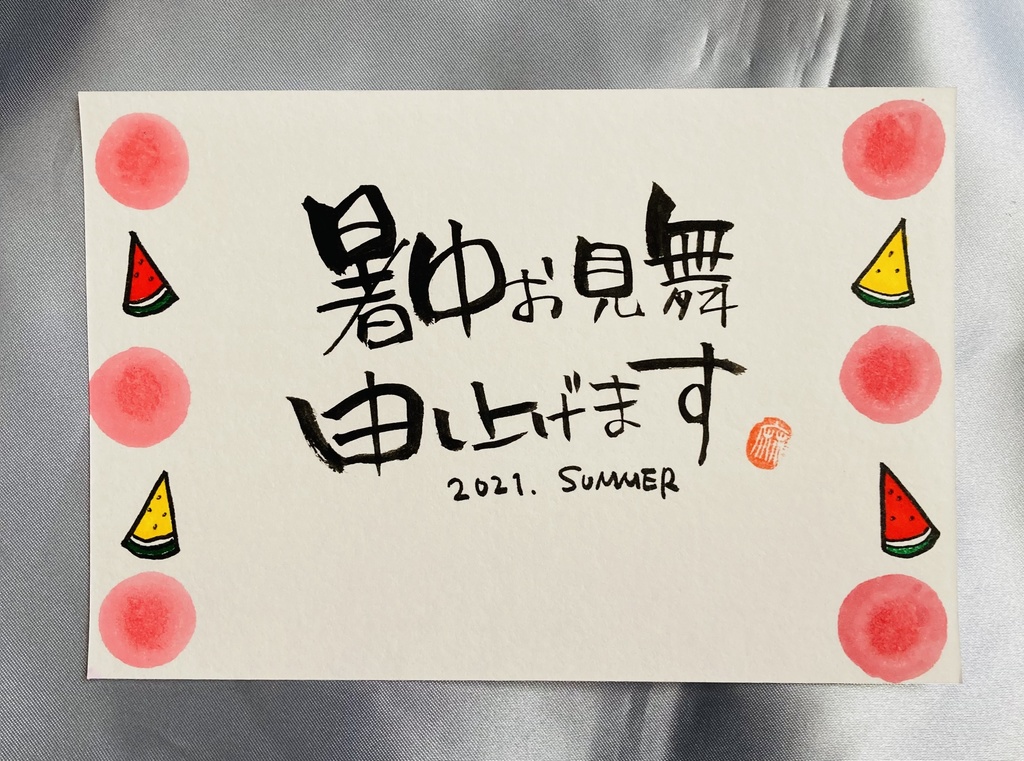 暑中お見舞
申上げます
2021. SUMMER